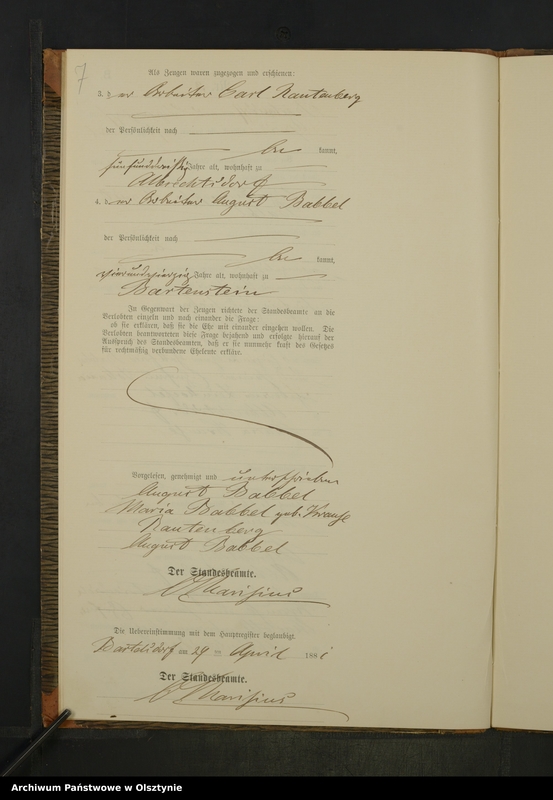 7
Als Zeugen waren zugezogen und erschienen:
3. der Arbeiter Carl Rautenberg
der Persönlichkeit nach
be kannt,
fünfunddreißig Jahre alt, wohnhaft zu
Albrechtsdorf
4. der Arbeiter August Babbel
der Persönlichkeit nach
be kannt,
vierundvierzig Jahre alt, wohnhaft zu
Bartenstein
In Gegenwart der Zeugen richtete der Standesbeamte an die
Verlobten einzeln und nach einander die Frage:
ob sie erklären, daß sie die Ehe mit einander eingehen wollen. Die
Verlobten beantworteten diese Frage bejahend und erfolgte hierauf der
Ausspruch des Standesbeamten, daß er sie nunmehr kraft des Gesetzes
für rechtmäßig verbundene Eheleute erkläre.
Vorgelesen, genehmigt und unterschrieben
August Babbel
Maria Babbel geb. Krause
Rautenberg
August Babbel
Der Standesbeamte.
Die Uebereinstimmung mit dem Hauptregister beglaubigt.
am 24 ten April 188
Der Standesbeamte.
Archiwum Państwowe w Olsztynie